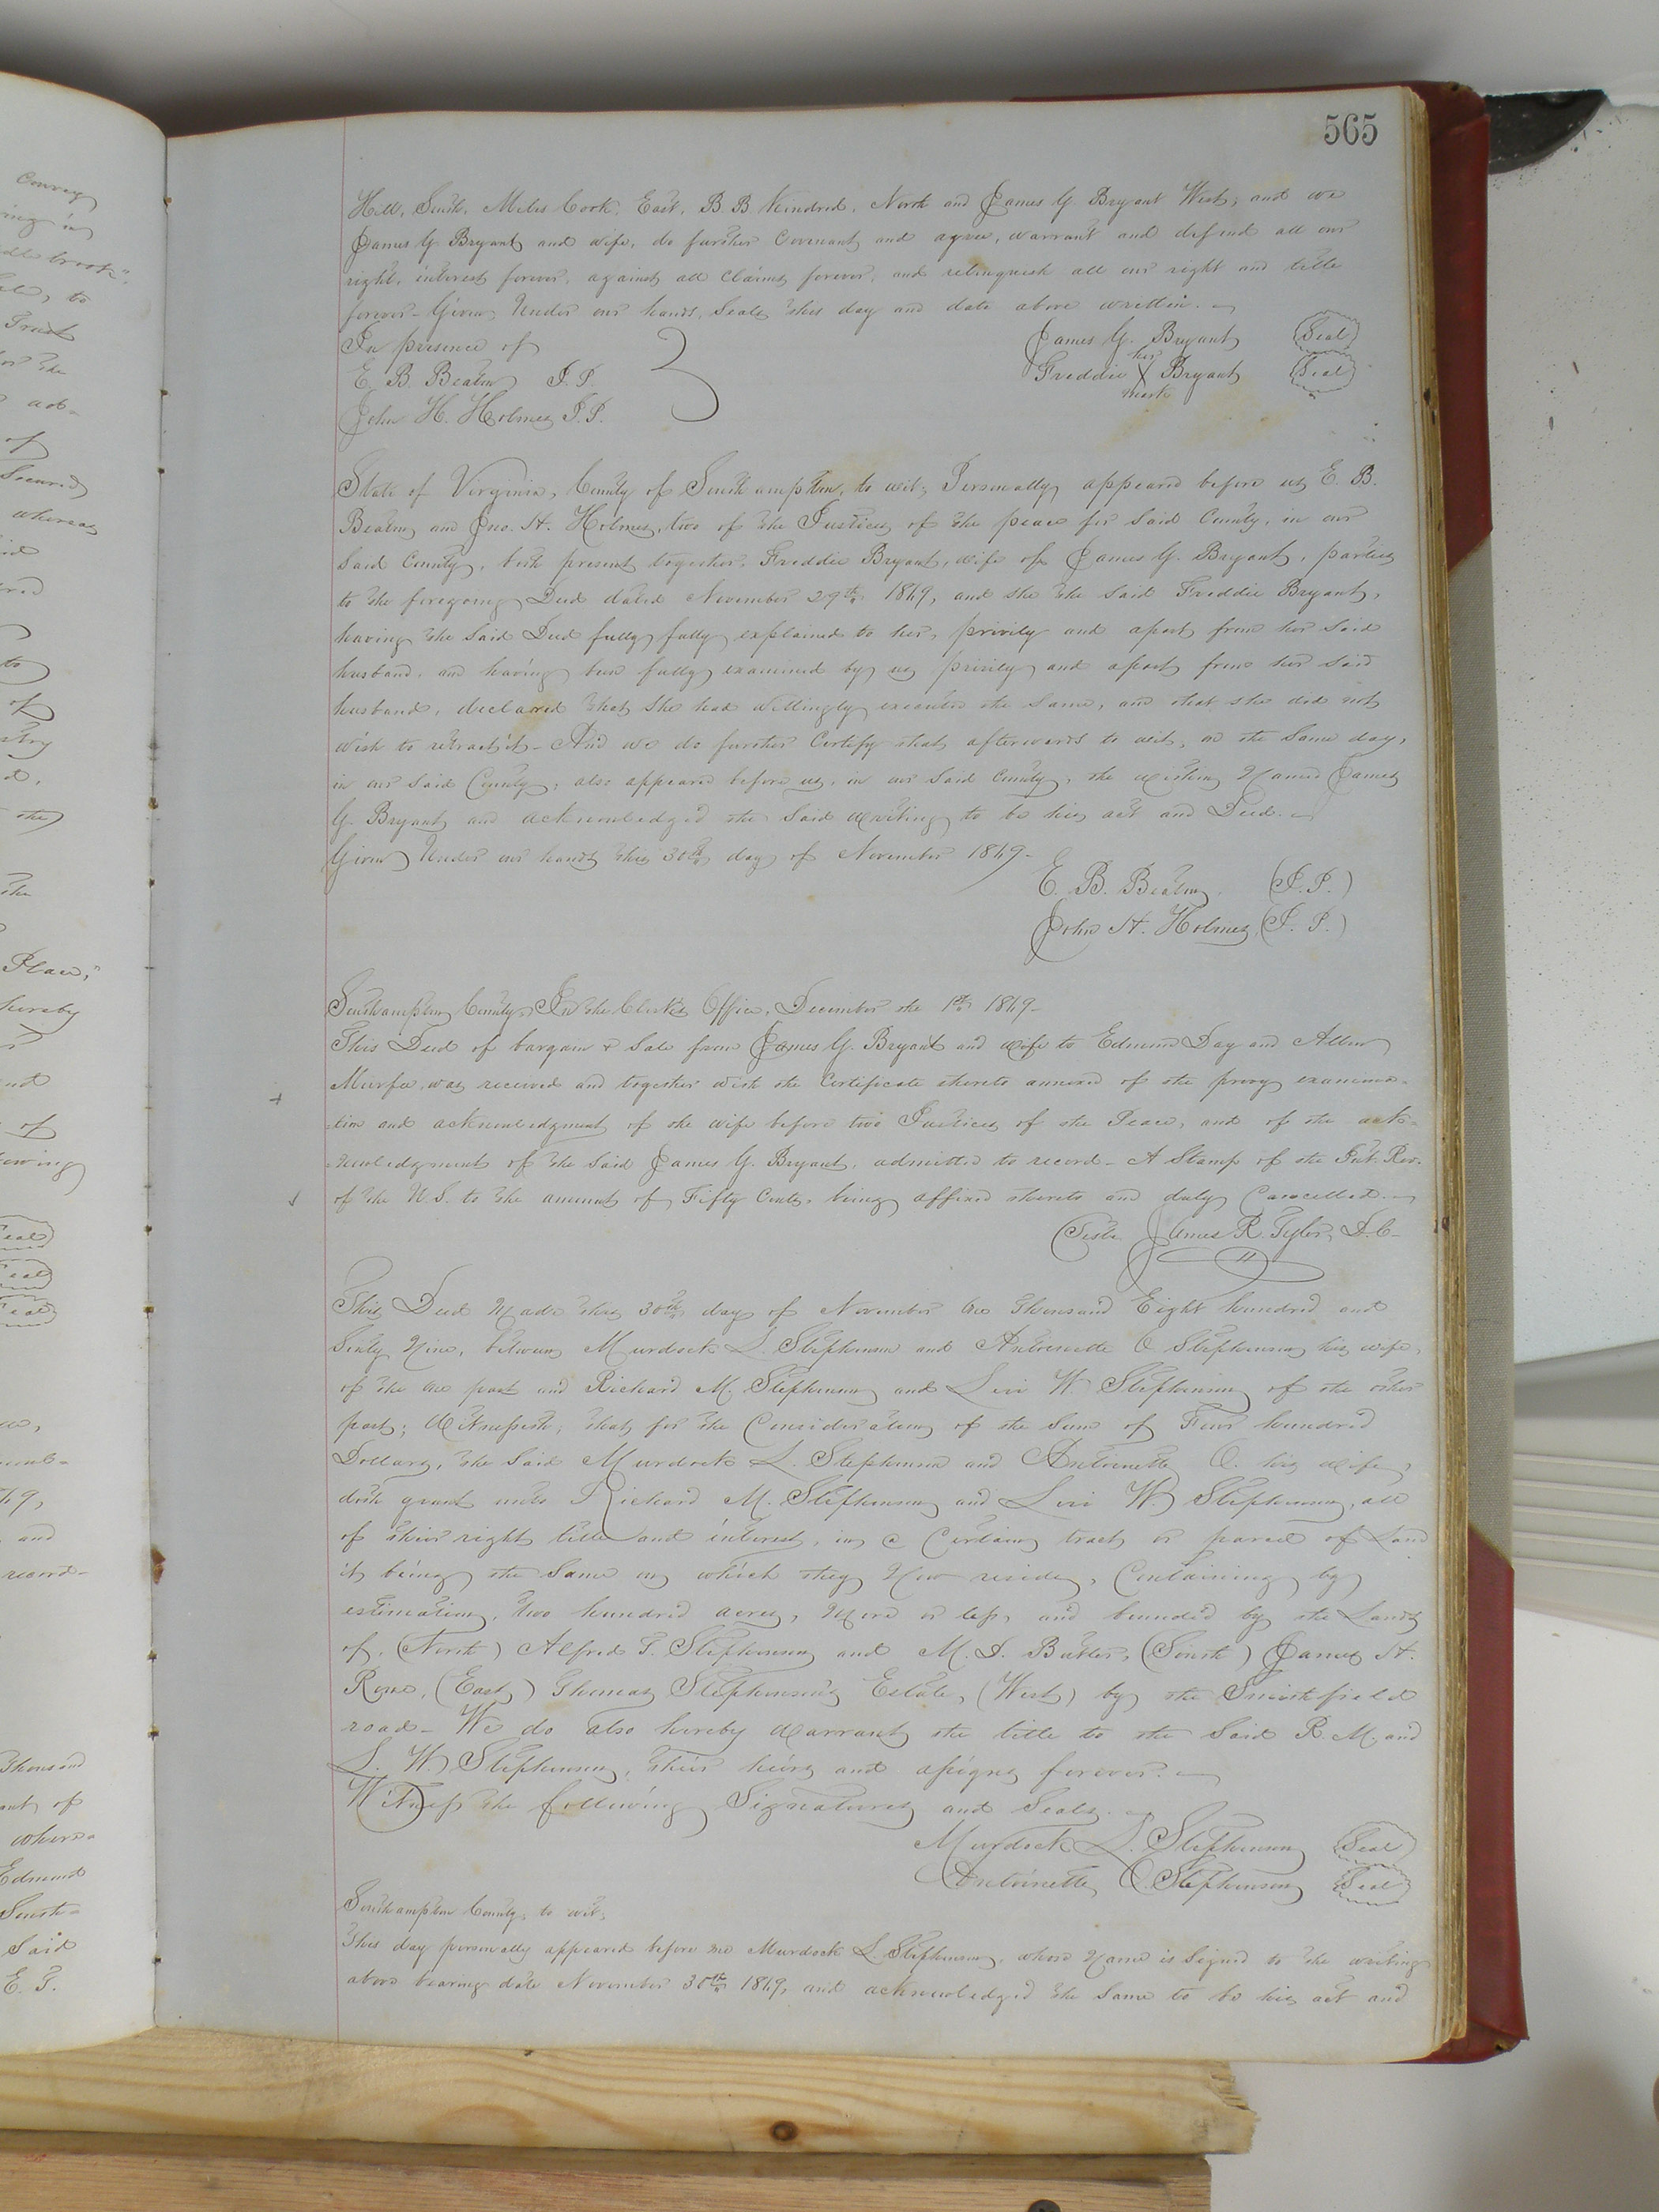 565
Hill, South, Miles Cook, East, B. B Kindred, North and James G. Bryant West; and we
James G. Bryant and wife, do further Covenant and agree, warrant and defend all our
right, interest forever, against all Claims forever, and relinquish all our right and title
forever - Given Under our hands, Seals this day and date above written. -
In presence of
E. B. Beaton J. P.
John H. Holmes J. P.
James G. Bryant (Seal)
her
Freddie X Bryant (Seal)
mark
State of Virginia, County of Southampton, to wit; Personally appeared before us E. B.
Beaton and Jno. H. Holmes, two of the Justices of the peace for Said County, in our
Said County, both present together, Freddie Bryant, wife of James G. Bryant, parties
to the foregoing Deed dated November 29th 1869, and she the Said Freddie Bryant,
having the Said Deed fully fully explained to her, privily and apart from her Said
husband, and having been fully examined by us privily and apart from her Said
husband, declared that She had willingly executed the Same, and that she did not
wish to retract it - And we do further Certify that afterwards to wit, on the Same day,
in our Said County, also appeared before us, in our Said County, the within Named James
G. Bryant and acknowledged the Said writing to be his act and Deed. -
Given Under our hands this 30th day of November 1869 -
E. B. Beaton (J. P.)
John H. Holmes (J. P.)
Southampton County, In the Clerk's Office, December the 1st 1869 -
This Deed of bargain & Sale from James G. Bryant and wife to Edmund Day and Allen
Murfee, was received and together with the Certificate thereto annexed of the privy examina-
tion and acknowledgment of the wife before two Justices of the Peace, and of the ack-
nowledgment of the Said James G. Bryant, admitted to record - A Stamp of the Int. Rev.
of the U. S. to the amount of Fifty Cents, being affixed thereto and duly Cancelled. -
Teste James R. Tyler, D. C -
This Deed Made this 30th day of November One thousand Eight hundred and
Sixty Nine, between Murdock L. Stephenson and Antoinette O Stephenson his wife,
of the One part and Richard M. Stephenson and Levi W. Stephenson of the other
part; Witnesseth, that for the Consideration of the Sum of Four hundred
Dollars, the Said Murdock L. Stephenson and Antoinette O. his wife,
doth grant unto Richard M. Stephenson and Levi W. Stephenson, all
of their right title and interest, in a Certain tract or parcel of Land
it being the Same on which they Now reside, Containing by
estimation, two hundred acres, More or less, and bounded by the Lands
of, (North) Alfred T. Stephenson and M. D. Butler, (South) James H.
Rowe, (East) Thomas Stephenson's Estate, (West) by the Smithfield
road - We do also hereby Warrant the title to the Said R. M. and
L. W. Stephenson, their heirs and assigns forever. -
Witness the following Signatures and Seals. -
Murdock L. Stephenson (Seal)
Antoinette O Stephenson (Seal)
Southampton County, to wit;
This day personally appeared before me Murdock L. Stephenson, whose Name is Signed to the writing
above bearing date November 30th 1869, and acknowledged the Same to be his act and